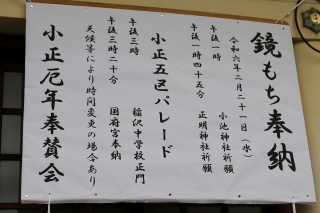 鏡もち奉納
令和六年二月二十一日（水）
午後一時　小池神社祈願
午後一時四十五分　正明神社祈願
小正五区パレード
午後三時　稲沢中学校正門
午後三時二十分　国府宮奉納
天候等により時間変更の場合あり
小正厄年奉賛会